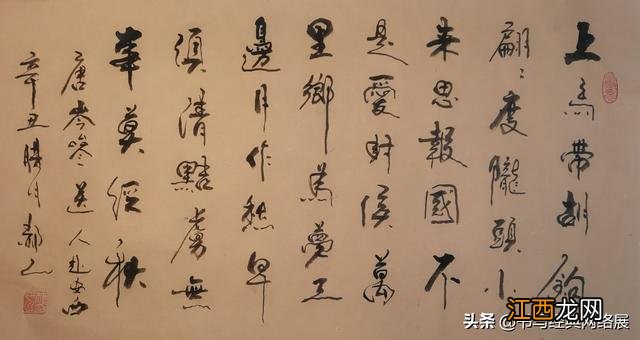 上馬帶胡鉤
翩〻度隴頭小
來思報國不
是愛封侯萬
里鄉為夢三
邊月作愁早
須清黠虜無
事莫經秋
唐岑參送人赴安西
辛丑臘月
江西龙网
头条 @书写经典网络展